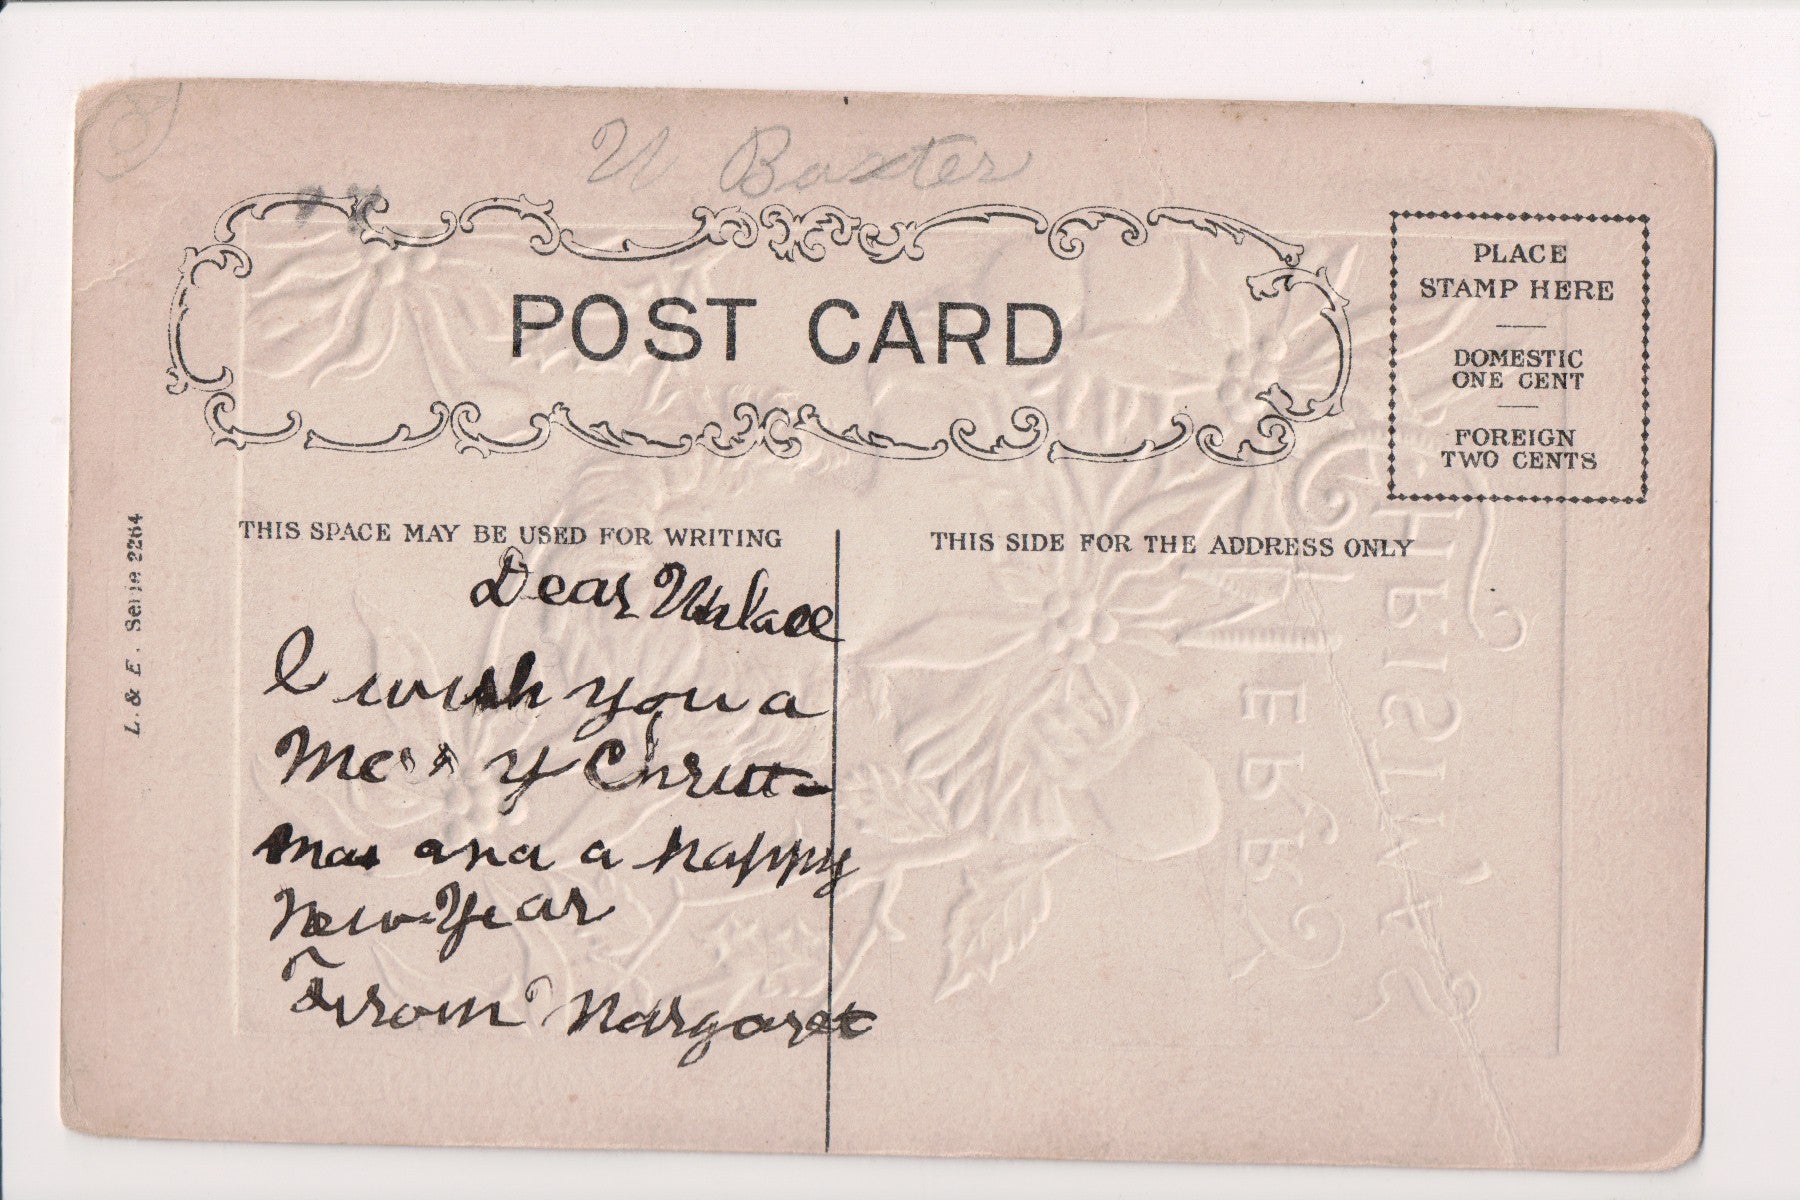 W Baxter
POST CARD
PLACE
STAMP HERE
DOMESTIC
ONE CENT
FOREIGN
TWO CENTS
THIS SPACE MAY BE USED FOR WRITING
THIS SIDE FOR THE ADDRESS ONLY
L. & E. Serie 2264
Dear Walace
I wish you a
Merry Christ-
mas and a happy
New-Year
From Margaret
A HAPPY
CHRISTMAS